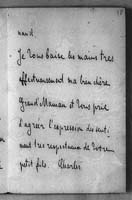 nand
Je vous baise les mains très
affectueusement ma bien chère
Grand'Maman et vous prie
d'agréer l'expression des senti-
ments très respectueux de votre
petit fils. Charles